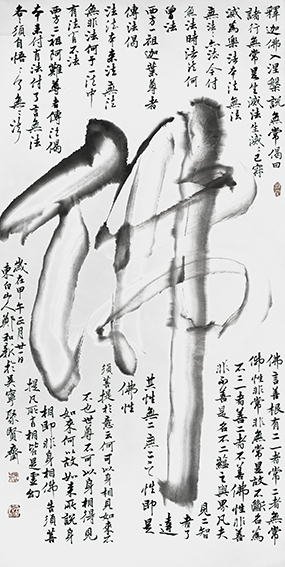 釋迦佛入涅槃說無常偈曰
諸行無常是生滅法生滅滅已寂
滅為樂法本法無法
無法法亦法今付
無法時法法何
曾法
西方一祖迦葉尊者
傳法偈
法法本來法無法
無非法何于一法中
有法有不法
西方二祖阿難尊者傳法偈
本來付有法付了言無法
各須自悟悟了無無法
佛
佛言善根有二一者常二者無常
佛性非常非無常是故不斷名為
不二一者善二者不善佛性非善
非不善是名不二蘊之與界凡夫
見二智
者了
達
其性無二無二之性即是
佛性
須菩提於意云何可以身相見如來不
不也世尊不可以身相得見
如來何以故如來所說身
相即非身相佛告須菩
提凡所有相皆是虛妄
歲在甲午正月廿一日
東白山人鄭和新於吳寧聚賢齋